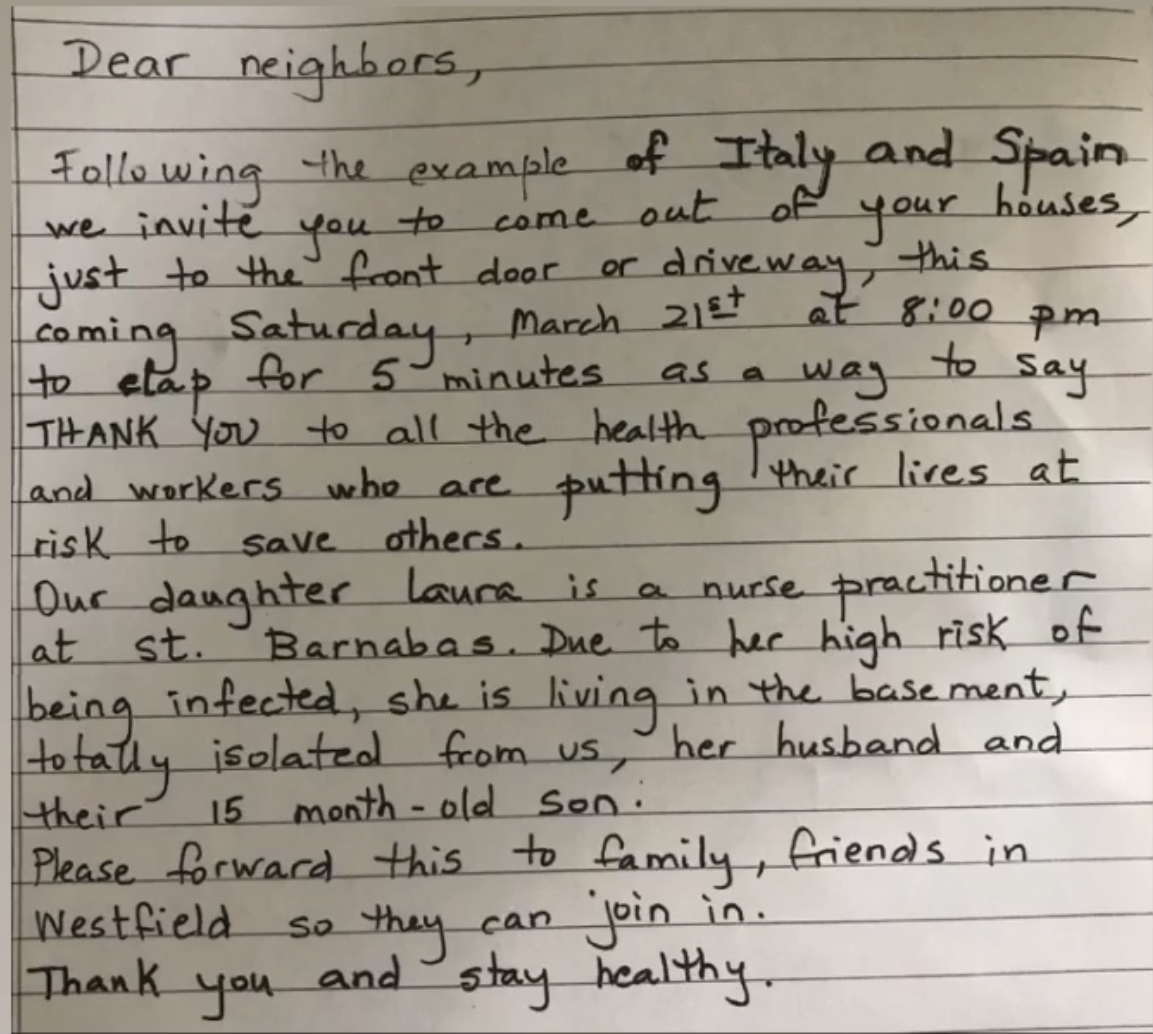 Dear neighbors,
Following the example of Italy and Spain
we invite you to come out of your houses,
just to the front door or driveway, this
coming Saturday, March 21st at 8:00 pm
to clap for 5 minutes as a way to say
THANK YOU to all the health professionals
and workers who are putting their lives at
risk to save others.
Our daughter Laura is a nurse practitioner
at st. Barnabas. Due to her high risk of
being infected, she is living in the basement,
totally isolated from us, her husband and
their 15 month-old son.
Please forward this to family, friends in
Westfield so they can join in.
Thank you and stay healthy.